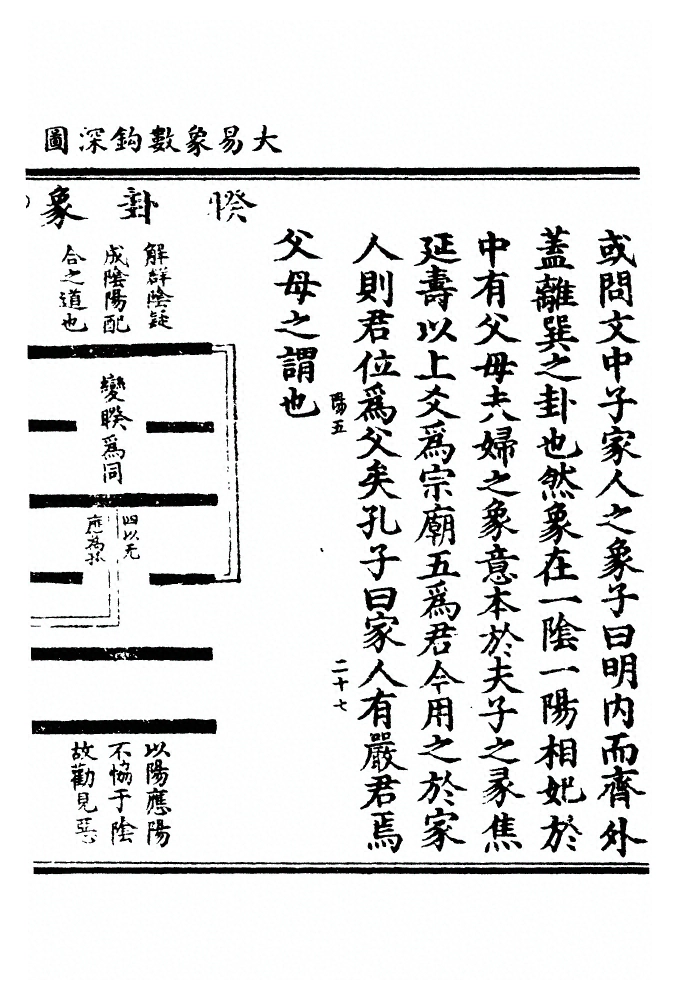 大易象數鈎深圖
或問文中子家人之象子曰明内而齊外
蓋離巽之卦也然象在一陰一陽相妃於
中有父母夫婦之象意本於夫子之彖焦
延壽以上爻爲宗廟五爲君今用之於家
人則君位爲父矣孔子曰家人有嚴君焉
父母之謂也
陽五
二十七
睽卦象
解群陰疑
成陰陽配
合之道也
變睽爲同
四以无
應為孤
以陽應陽
不恊于陰
故勸見惡